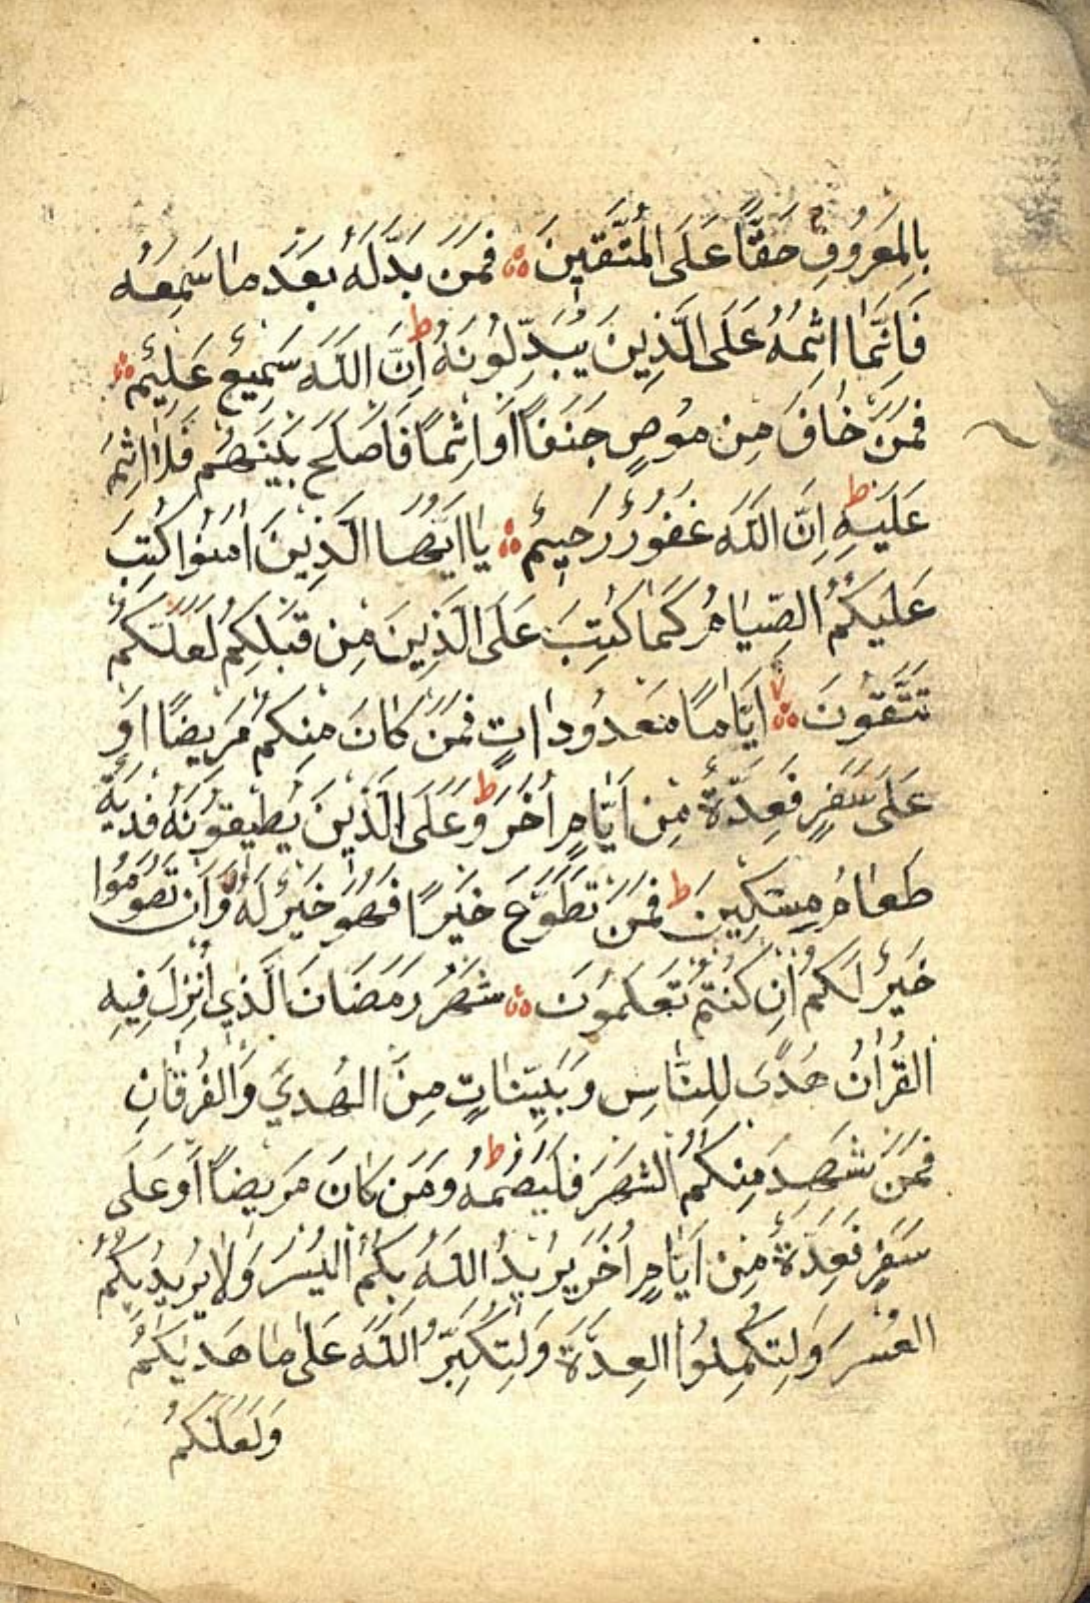 بِالْمَعْرُوفِ حَقًّا عَلَى الْمُتَّقِينَ ۞ فَمَنْ بَدَّلَهُ بَعْدَ مَا سَمِعَهُ
فَاِنَّمَا اِثْمُهُ عَلَى الَّذِينَ يُبَدِّلُونَهُ ط اِنَّ اللَّهَ سَمِيعٌ عَلِيمٌ ۞
فَمَنْ خَافَ مِنْ مُوصٍ جَنَفًا اَوْ اِثْمًا فَاَصْلَحَ بَيْنَهُمْ فَلَا اِثْمَ
عَلَيْهِ ط اِنَّ اللَّهَ غَفُورٌ رَحِيمٌ ۞ يَا اَيُّهَا الَّذِينَ اٰمَنُوا كُتِبَ
عَلَيْكُمُ الصِّيَامُ كَمَا كُتِبَ عَلَى الَّذِينَ مِنْ قَبْلِكُمْ لَعَلَّكُمْ
تَتَّقُونَ ۞ لا اَيَّامًا مَعْدُودَاتٍ فَمَنْ كَانَ مِنْكُمْ مَرِيضًا اَوْ
عَلَى سَفَرٍ فَعِدَّةٌ مِنْ اَيَّامٍ اُخَرَ ط وَعَلَى الَّذِينَ يُطِيقُونَهُ فِدْيَةٌ
طَعَامُ مِسْكِينَ ط فَمَنْ تَطَوَّعَ خَيْرًا فَهُوَ خَيْرٌ لَهُ وَاَنْ تَصُومُوا
خَيْرٌ لَكُمْ اِنْ كُنْتُمْ تَعْلَمُونَ ۞ شَهْرُ رَمَضَانَ الَّذِي اُنْزِلَ فِيهِ
الْقُرْاٰنُ هُدًى لِلنَّاسِ وَبَيِّنَاتٍ مِنَ الْهُدَى وَالْفُرْقَانِ
فَمَنْ شَهِدَ مِنْكُمُ الشَّهْرَ فَلْيَصُمْهُ ط وَمَنْ كَانَ مَرِيضًا اَوْ عَلَى
سَفَرٍ فَعِدَّةٌ مِنْ اَيَّامٍ اُخَرَ يُرِيدُ اللَّهُ بِكُمُ الْيُسْرَ وَلَا يُرِيدُ بِكُمُ
الْعُسْرَ وَلِتُكْمِلُوا الْعِدَّةَ وَلِتُكَبِّرُ اللَّهَ عَلَى مَا هَدٰيكُمْ
وَلَعَلَّكُمْ